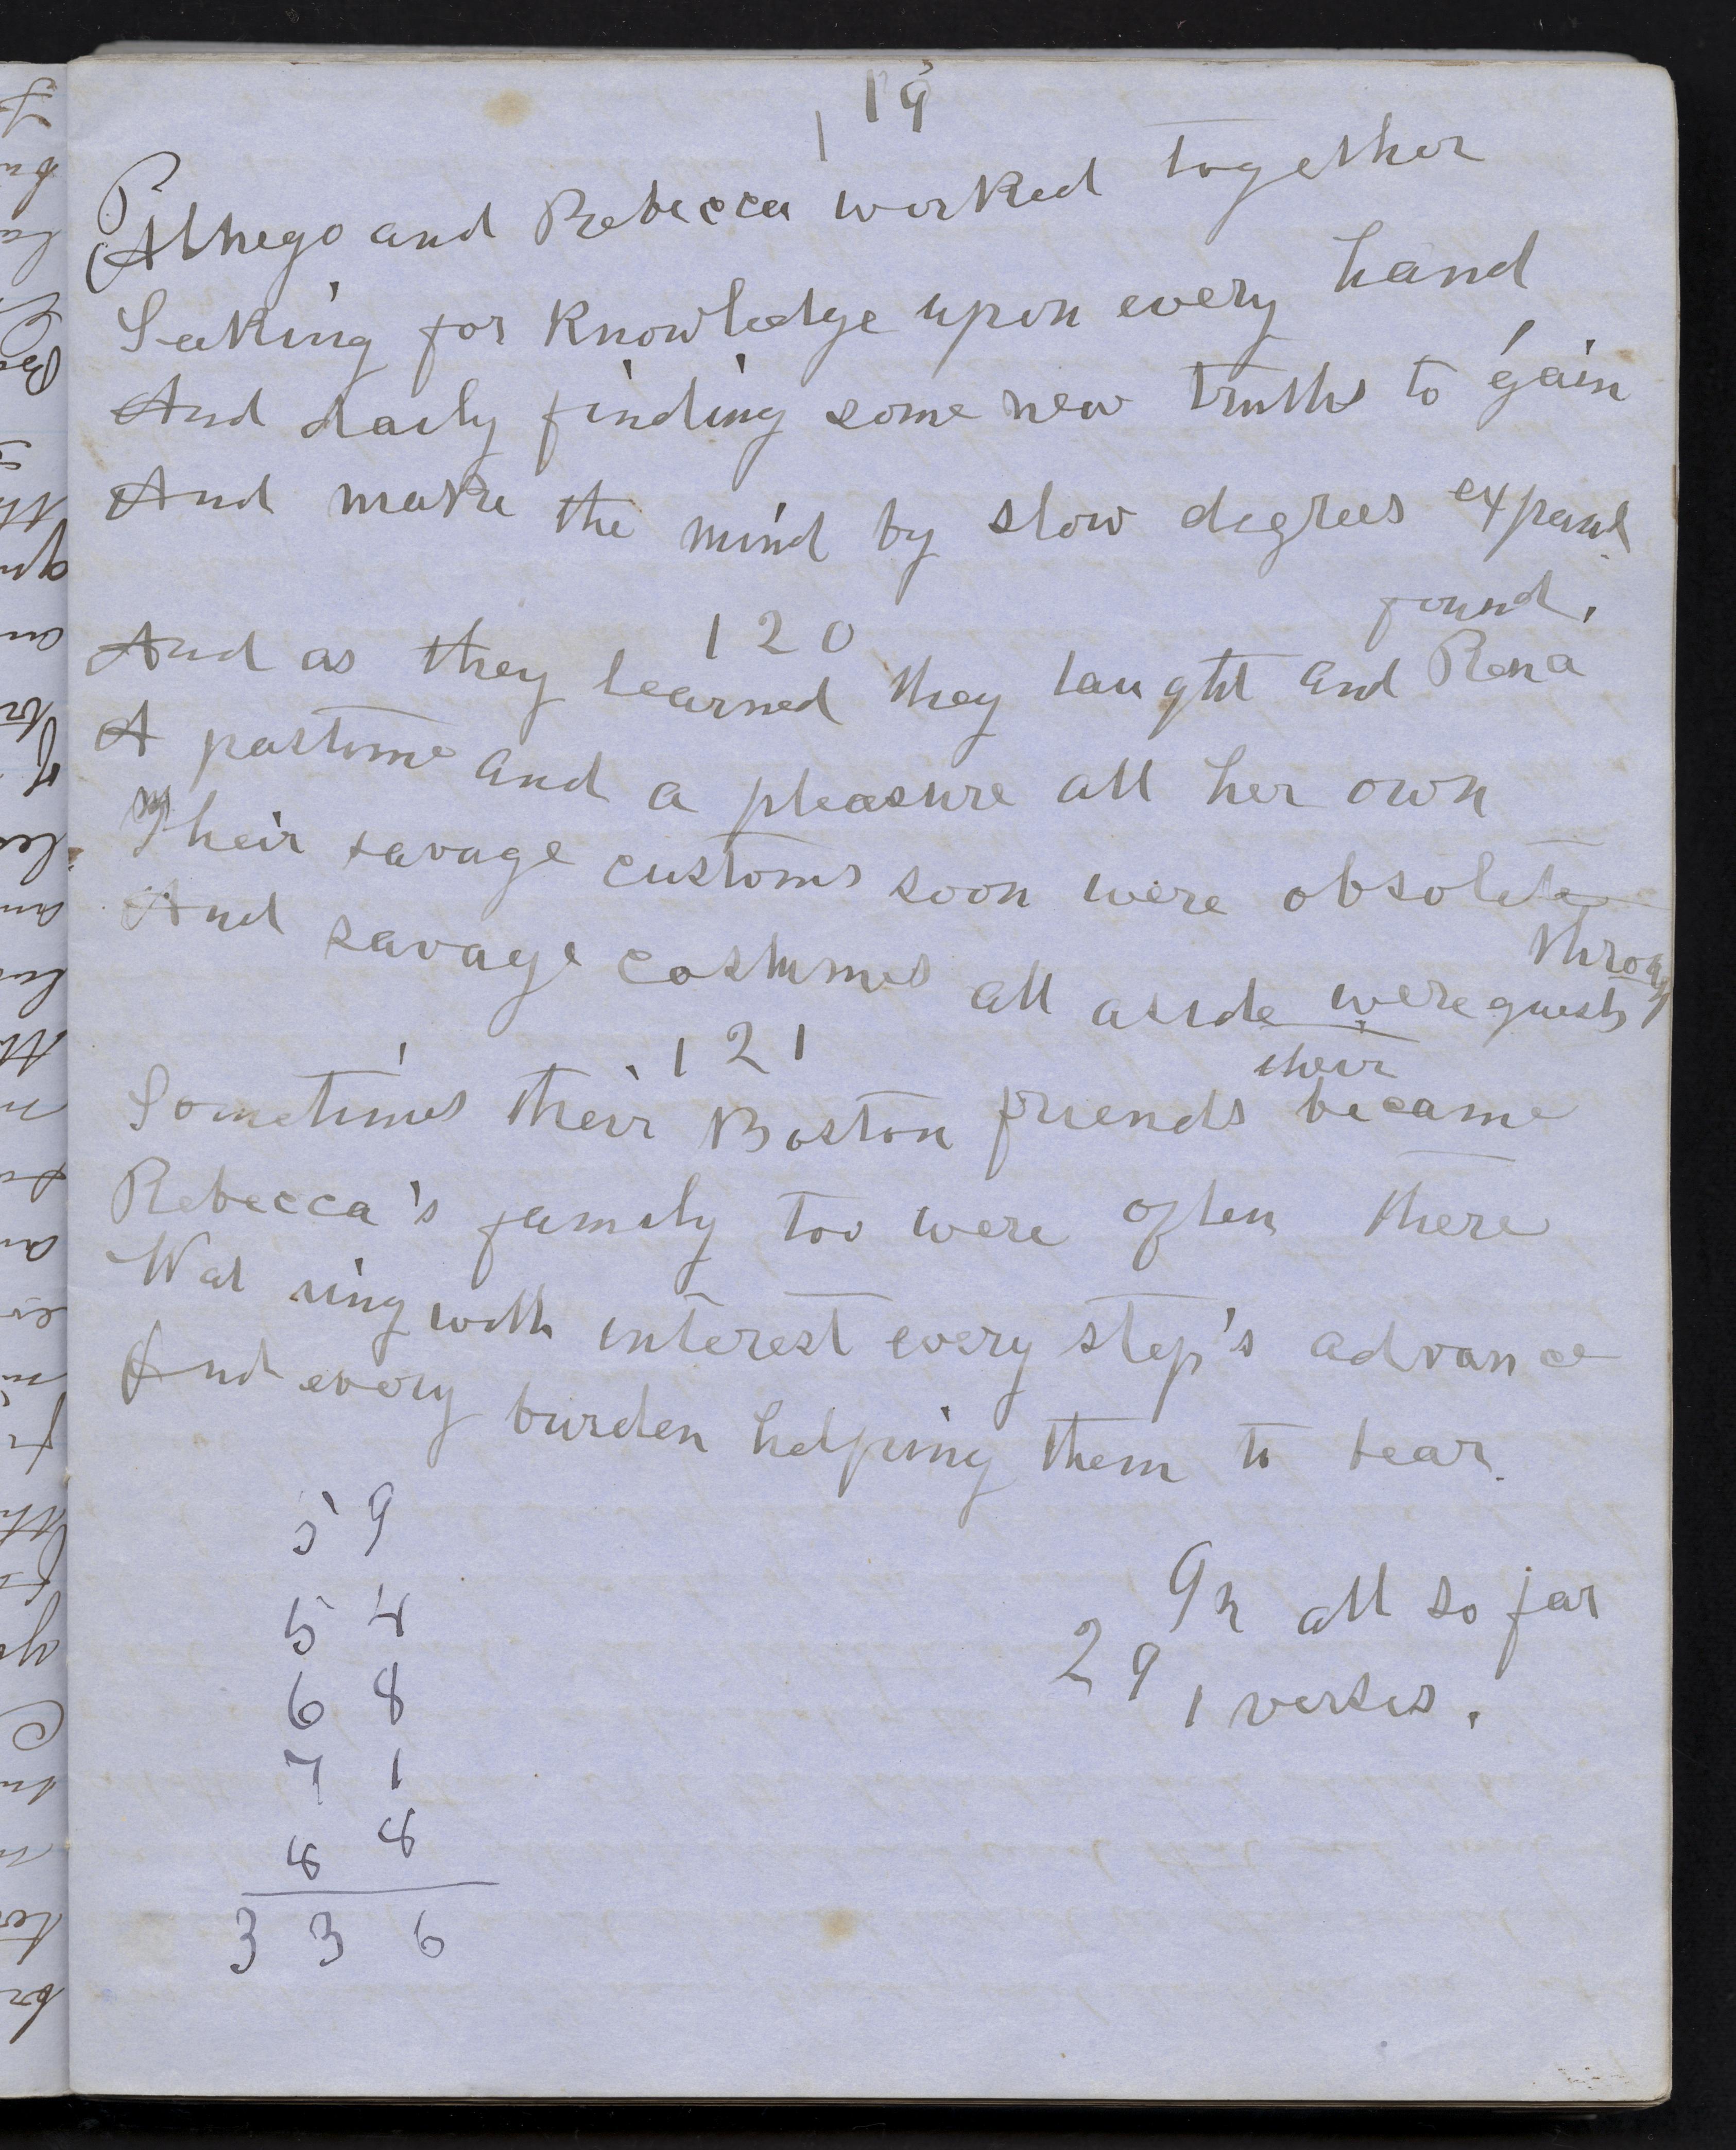 119
Althego and Rebecca worked together
Seeking for knowledge upon every hand
And daily finding some new truths to gain
And make the mind by slow degrees expand
120
And as they learned they taught and Rena found.
A pastime and a pleasure all her own
Their savage customs soon were obsolete
And savage costumes all aside were throng
121
Sometimes their Boston friends became their guests
Rebecca's family too were often there
Wat ing with interest every step's advance
And every burden helping them to bear.
59
54
68
71
88
336
In all so far
291 verses.